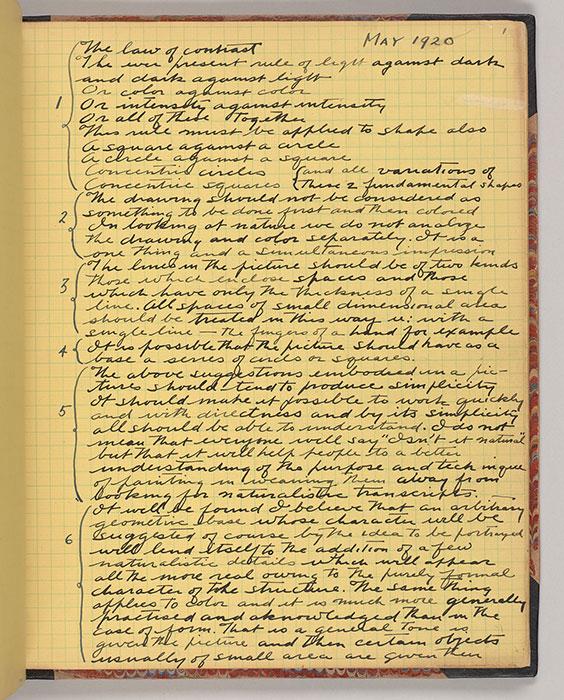 May 1920
1
The law of contrast
The ever present rule of light against dark
and dark against light
Or color against color
1 Or intensity against intensity
Or all of these together
This rule must be applied to shape also
A square against a circle
A circle against a square
Concentric circles { and all variations of
Concentric squares { these 2 fundamental shapes
The drawing should not be considered as
2 something to be done first and then colored
In looking at nature we do not analize
the drawing and color separately. It is a
one thing and a simultaneous impression
The lines in the picture should be of two kinds
3 those which enclose spaces and those
which have only the thickness of a single
line. All spaces of small dimensional area
should be treated in this way ie: with a
single line — the fingers of a hand for example
4 It is possible that the picture should have as a
base a series of circles or squares.
The above suggestions embodied in a pic-
tures should tend to produce simplicity
It should make it possible to work quickly
5 and with directness and by its simplicity
all should be able to understand. I do not
mean that everyone will say "Isn't it natural"
but that it will help people to a better
understanding of the purpose and technique
of painting in weaning them away from
looking for naturalistic transcripts.
It will be found I believe that an arbitrary
geometric base whose character will be
6 suggested of course by the idea to be portrayed
will lend itself to the addition of a few
naturalistic details which will appear
all the more real owing to the purely formal
character of the structure. The same thing
applies to color and it is much more generally
practised and acknowledged than in the
case of form. That is a general tone is
given the picture and then certain objects
usually of small area are given their